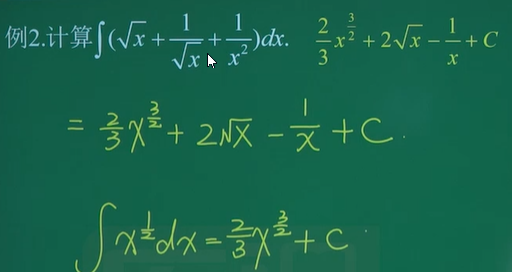 例2.计算∫(√x + 1/√x + 1/x²)dx. 2/3 x^(3/2) + 2√x − 1/x + C
= 2/3 x^(3/2) + 2√x − 1/x + C.
∫ x^(1/2) dx = 2/3 x^(3/2) + C.